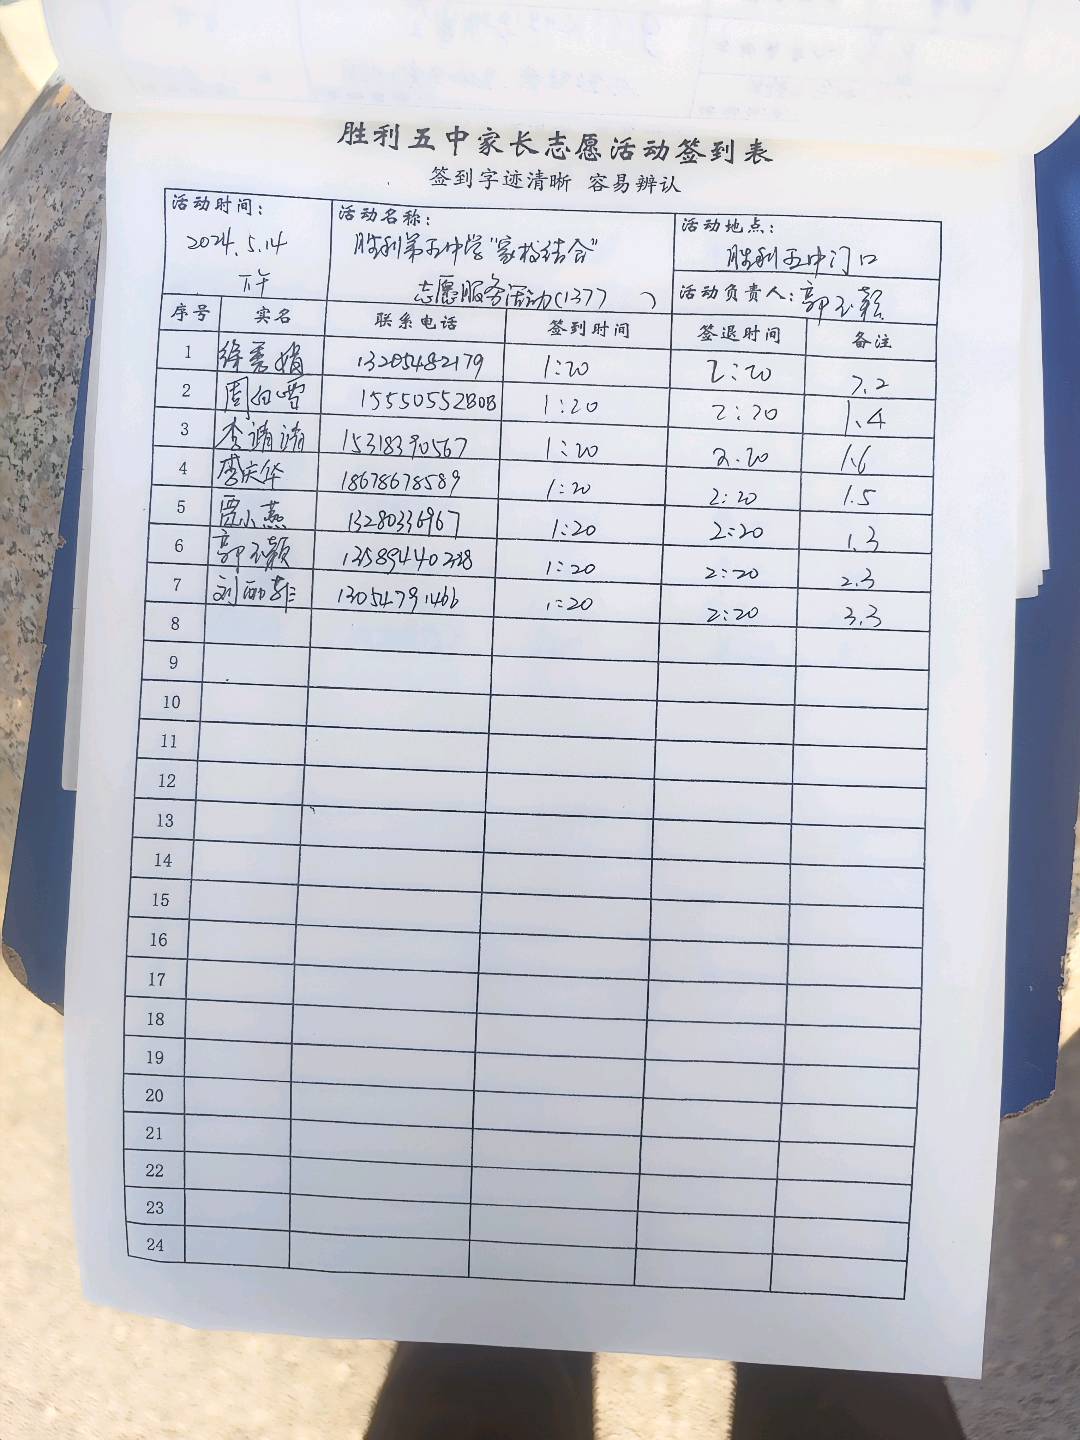 胜利五中家长志愿活动签到表
签到字迹清晰 容易辨认
活动时间: 2024.5.14 下午
活动名称: 胜利第五中学"家校结合" 志愿服务活动(1377 )
活动地点: 胜利五中门口
活动负责人: 郭玉颖
序号 实名 联系电话 签到时间 签退时间 备注
1 徐秀娟 13205482179 1:20 2:20 7.2
2 周白雪 15550552808 1:20 2:20 1.4
3 李靖靖 15318390567 1:20 2:20 1.6
4 李庆华 18678678589 1:20 2:20 1.5
5 贾小燕 13280336967 1:20 2:20 1.3
6 郭玉颖 13589440238 1:20 2:20 2.3
7 刘 13054791466 1:20 2:20 3.3
8
9
10
11
12
13
14
15
16
17
18
19
20
21
22
23
24